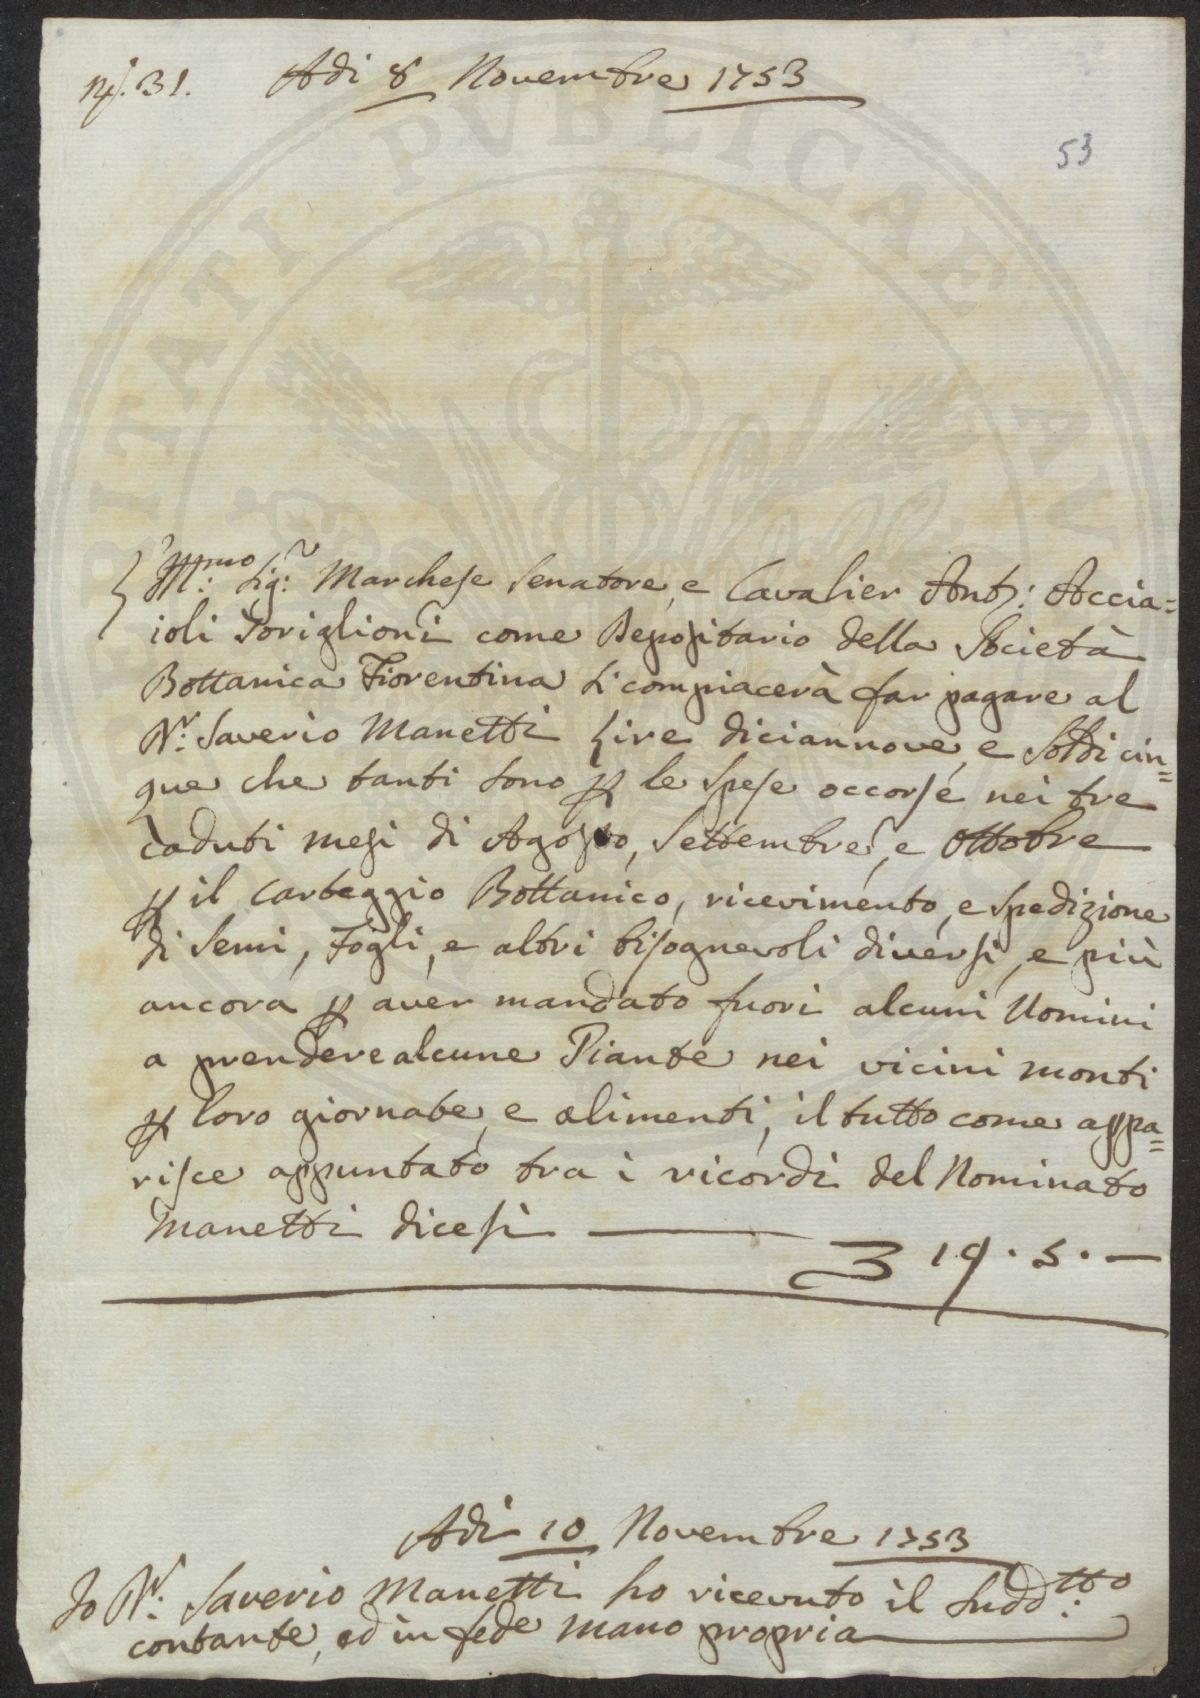 N.º 31. Adi 8 Novembre 1753
53
Ill:mo Sig:r Marchese Senatore, e Cavalier Ant:º Accia=
ioli Toriglioni come Depositario della Società
Bottanica Fiorentina si compiacerà far pagare al
D:r Saverio Manetti Lire diciannove, e Soldi cin=
que che tanti sono ꝑ le spese occorse nei tre
caduti mesi di Agosto, Settembre, e Ottobre
ꝑ il Carteggio Bottanico, ricevimento, e spedizione
di Semi, Fogli, e altri bisognevoli diversi, e più
ancora ꝑ aver mandato fuori alcuni Uomini
a prendere alcune Piante nei vicini monti
ꝑ loro giornate, e alimenti, il tutto come appa=
risce appuntato tra i ricordi del Nominato
Manetti dicesi ——— 19 . 5 . —
Adi 10 Novembre 1753
Io D:r Saverio Manetti ho ricevuto il Sudd:tto
contante, ed in fede mano propria
PVBLICAE